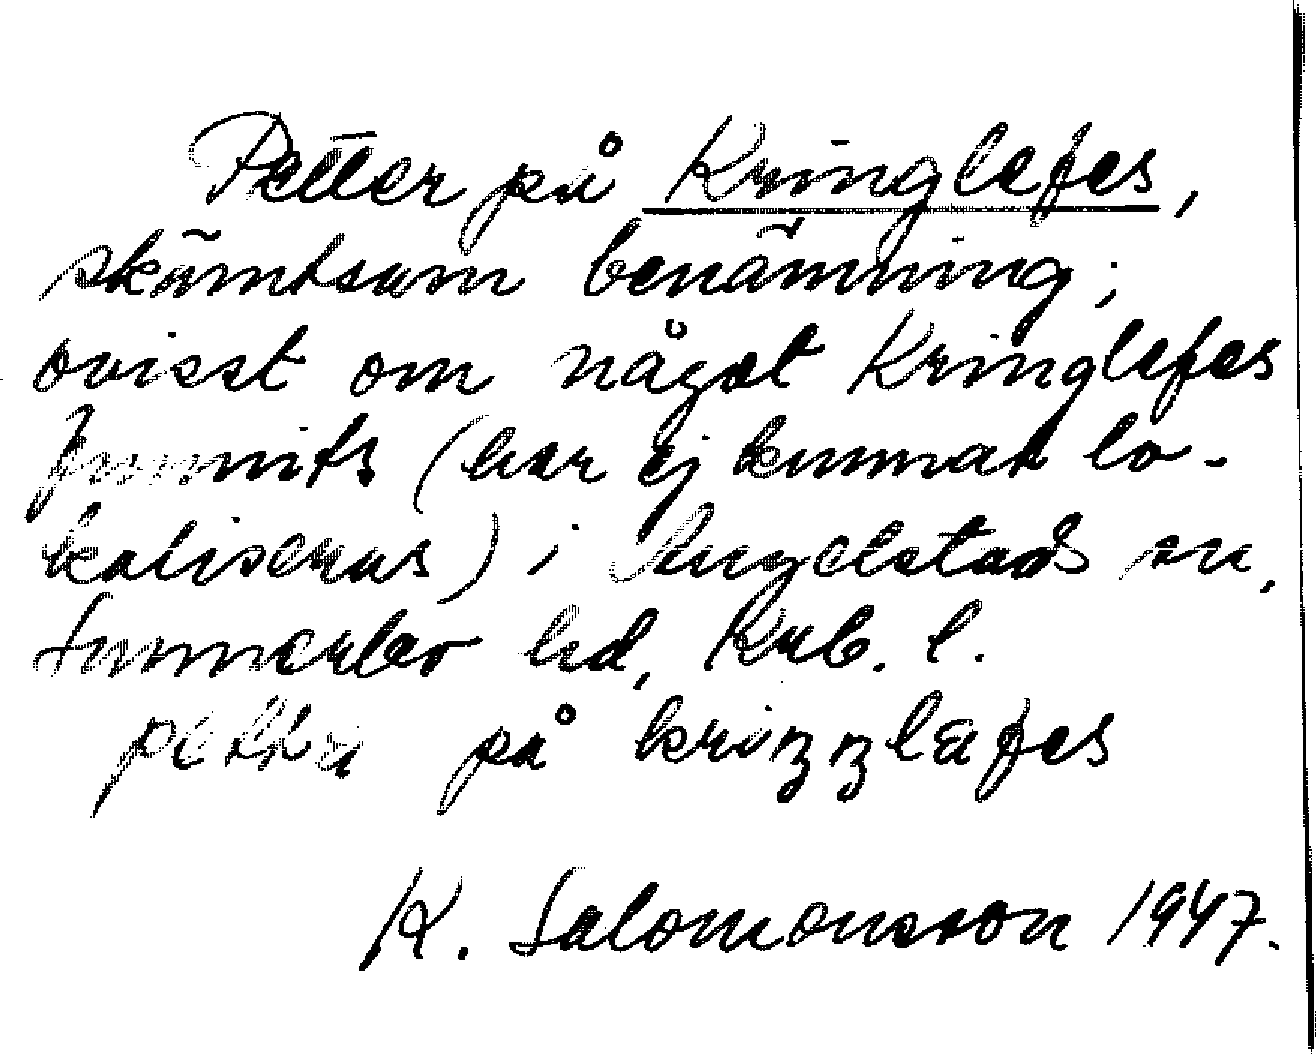 Petter på Kringlefes,
skämtsam benämning;
ovisst om något Kringlefes
funnits (har ej kunnat lo-
kaliseras) i Angelstads sn,
Sunnerbo hd, Krb. l.
på
K. Salomonsson 1947.